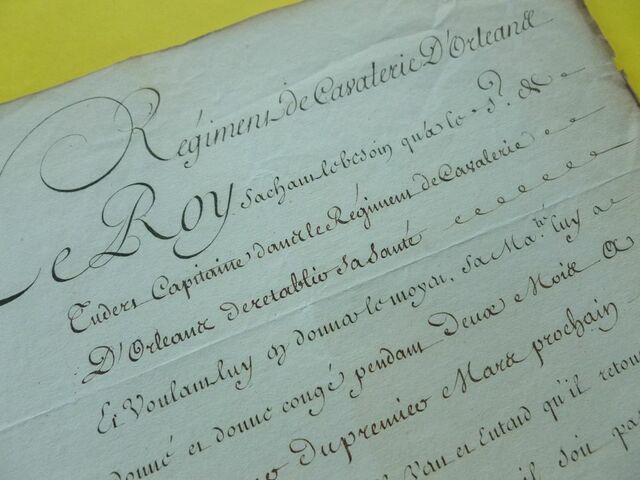 Régiment de Cavalerie D'Orleans
Le ROY sachant le besoin qu'a le S.r de
Enders Capitaine dans le Régiment de Cavalerie
D'Orleans de retablir sa Santé
Et Voulant luy en donner le moyen, Sa Ma.té luy a
donné et donne congé pendant Deux Mois A
du premier Mars prochain
Veut et Entend qu'il
il soit